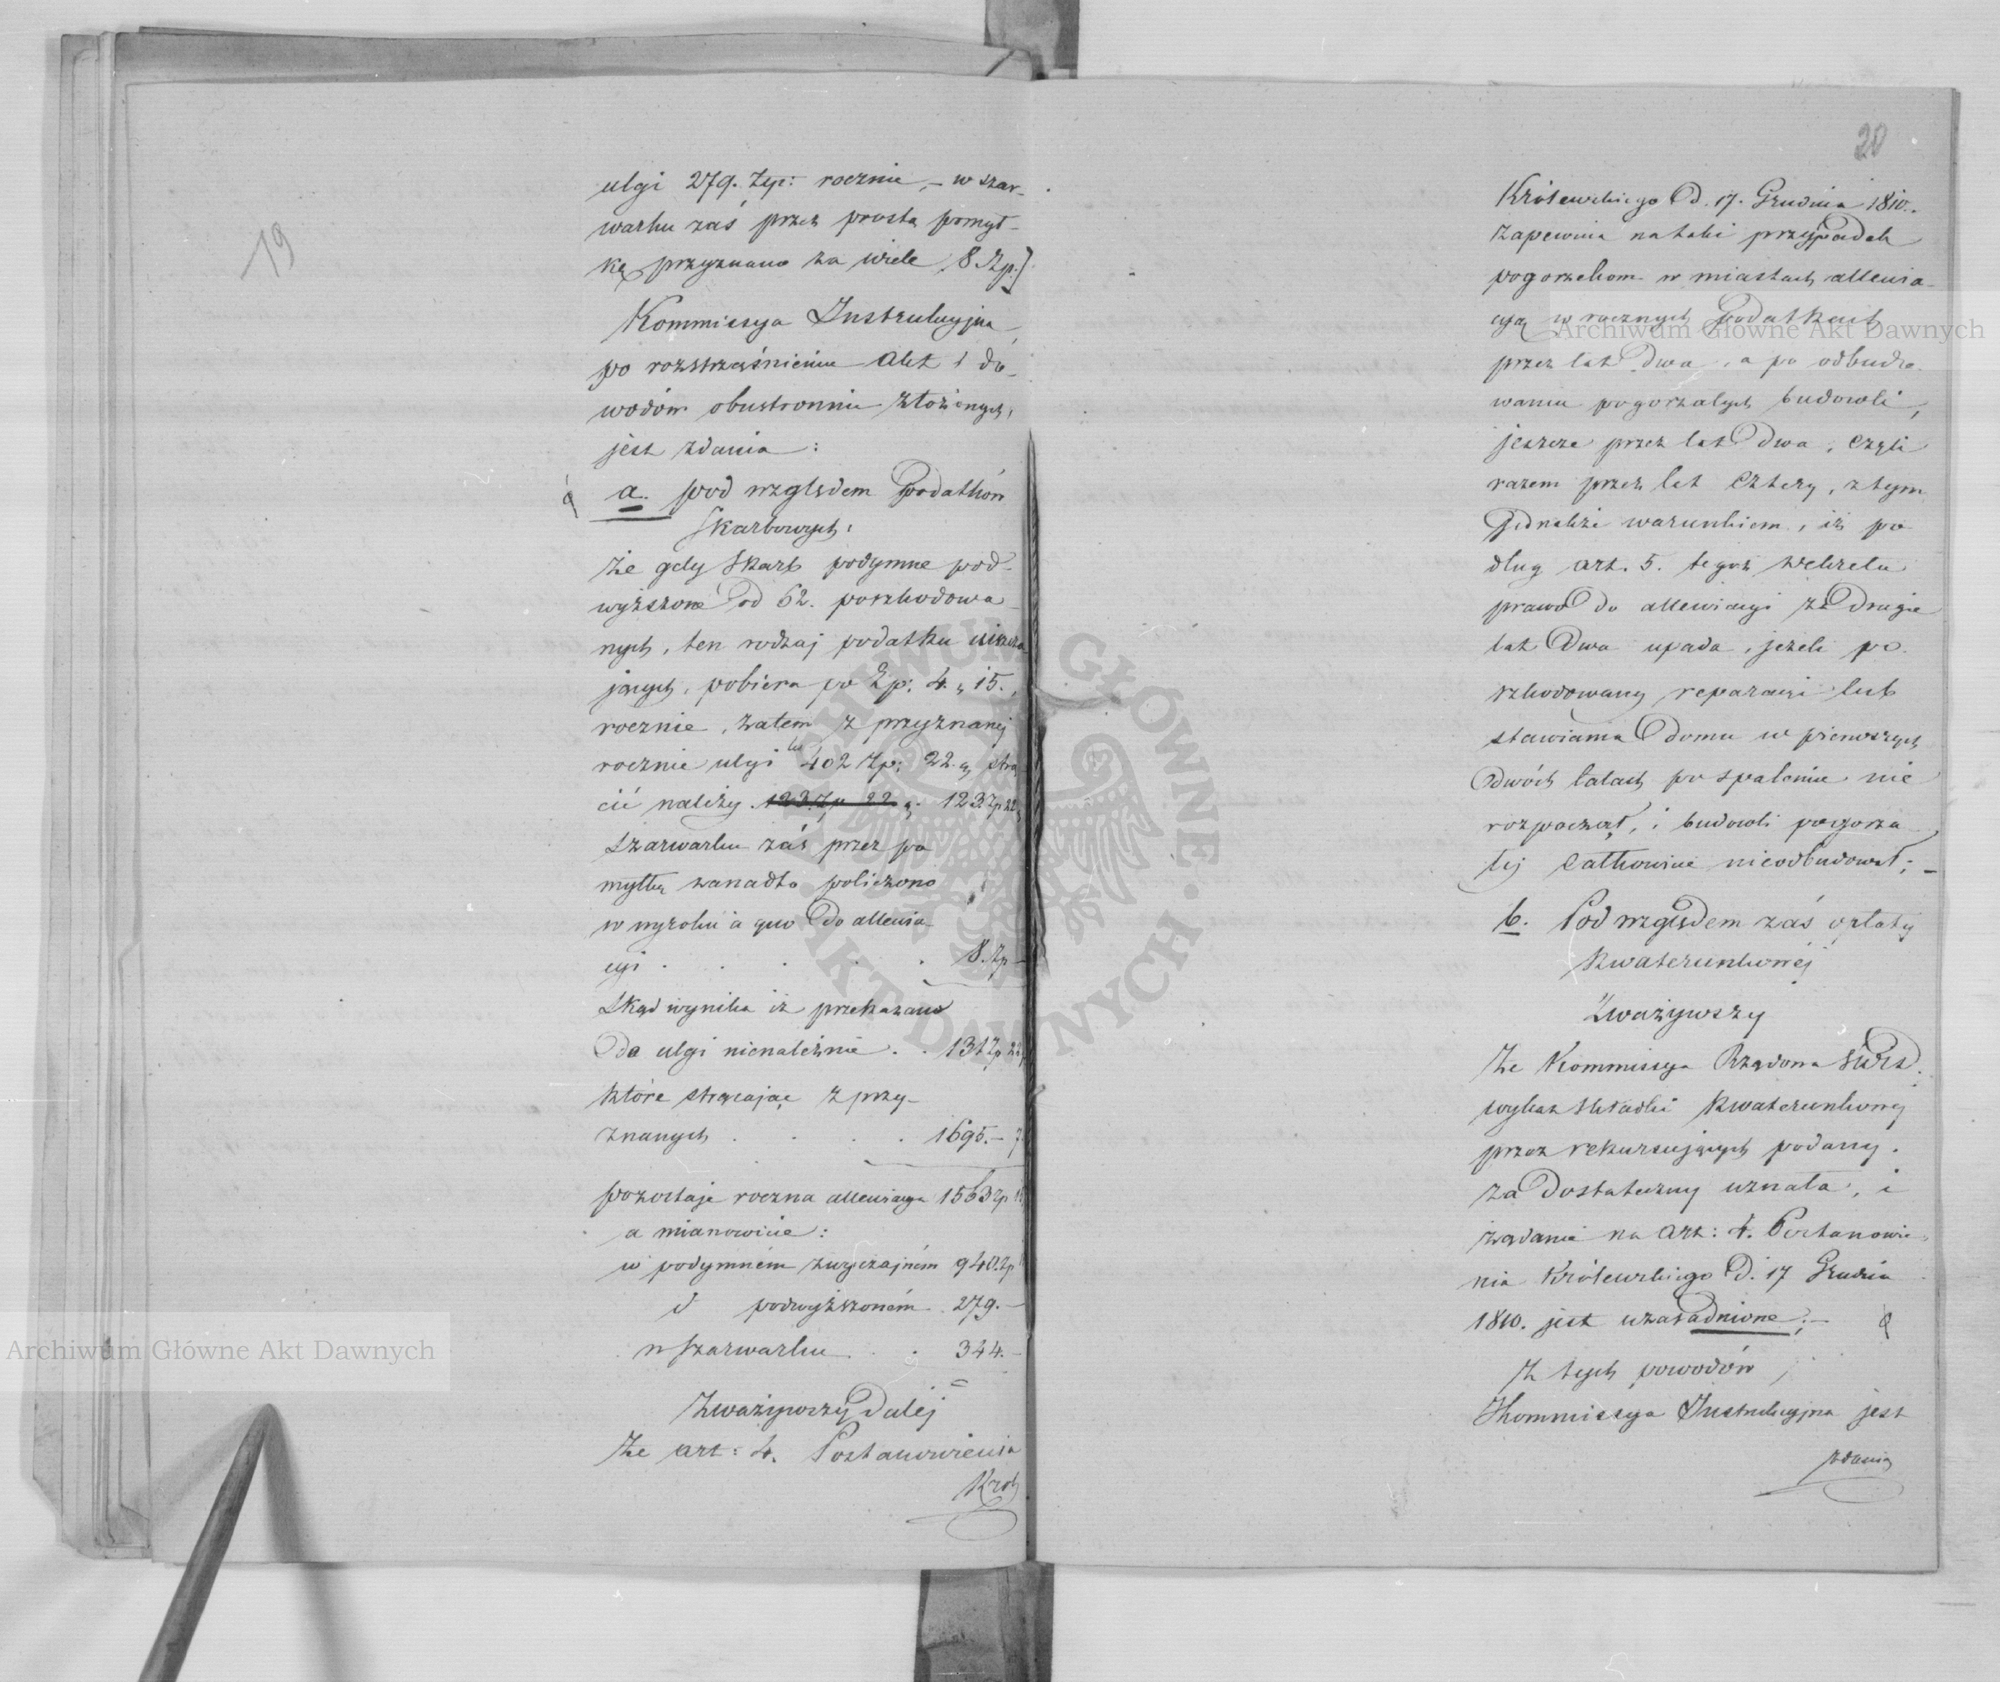 19
ulgi 279. Złp: rocznie, – w szar-
warku zaś przez prostą pomył-
kę przyznano za wiele 8 Złp.]
Kommissya Instrukcyjna
po roztrząśnieniu Akt i do-
wodów obustronnie złożonych,
jest zdania:
a. pod względem Podatków
Skarbowych:
że gdy Skarb podymne pod-
wyższone od 62. poszkodowa-
nych, ten rodzaj podatku
jących, pobiera po Zp: 4. g 15.
rocznie, zatem z przyznanéj
rocznie ulgi 402 Zp: 22. g strą-
cić należy. 123 Zp 22 g. 123 Zp 22 g
Szarwarku zaś przez po
myłkę zanadto policzono
do allewia-
cyi . . . . 8. Zp –
Skąd wynika iż przekazano
do ulgi nienależnie . . 131 Zp 22
które strącając z przy-
znanych . . . . 1695.– 7
pozostaje roczna allewiacya 1563 Zp 15
a mianowicie:
w podymném zwyczajném 940. Zp
d podwyższoném 279. –
w Szarwarku . . . 344. –
Zważywszy Daléj
że art: 4. Postanowienia
Król
20
Królewskiego d. 17. Grudnia 1810.
zapewnia na taki przypadek
pogorzelcom w miastach allewia-
cyą w rocznych Podatkach
przez lat dwa, a po odbudo-
waniu pogorzałych budowli,
jeszcze przez lat dwa, czyli
razem przez lat cztery, z tym
jednakże warunkiem, iż po
dług art. 5. tegoż Dekretu
prawo do allewiacyi za drugie
lat dwa upada, jeżeli po-
szkodowany reparacyi lub
stawiania domu w pierwszych
dwóch latach po spaleniu nie
rozpoczął, i budowli pogorza-
łéj całkowicie nieodbudował; –
b. Pod względem zaś opłaty
Kwaterunkowéj
Zważywszy
że Kommissya Rządowa
wykaz składki Kwaterunkowéj
przez rekursujących podany.
za dostateczny uznała, i
żądanie na art: 4. Postanowie-
nia Królewskiego d. 17 Grudnia
1810. jest uzasadnione; –
Z tych powodów
Kommissya Instrukcyjna jest
zdania
Archiwum Główne Akt Dawnych
Archiwum Główne Akt Dawnych
ARCHIWUM GŁÓWNE AKT DAWNYCH